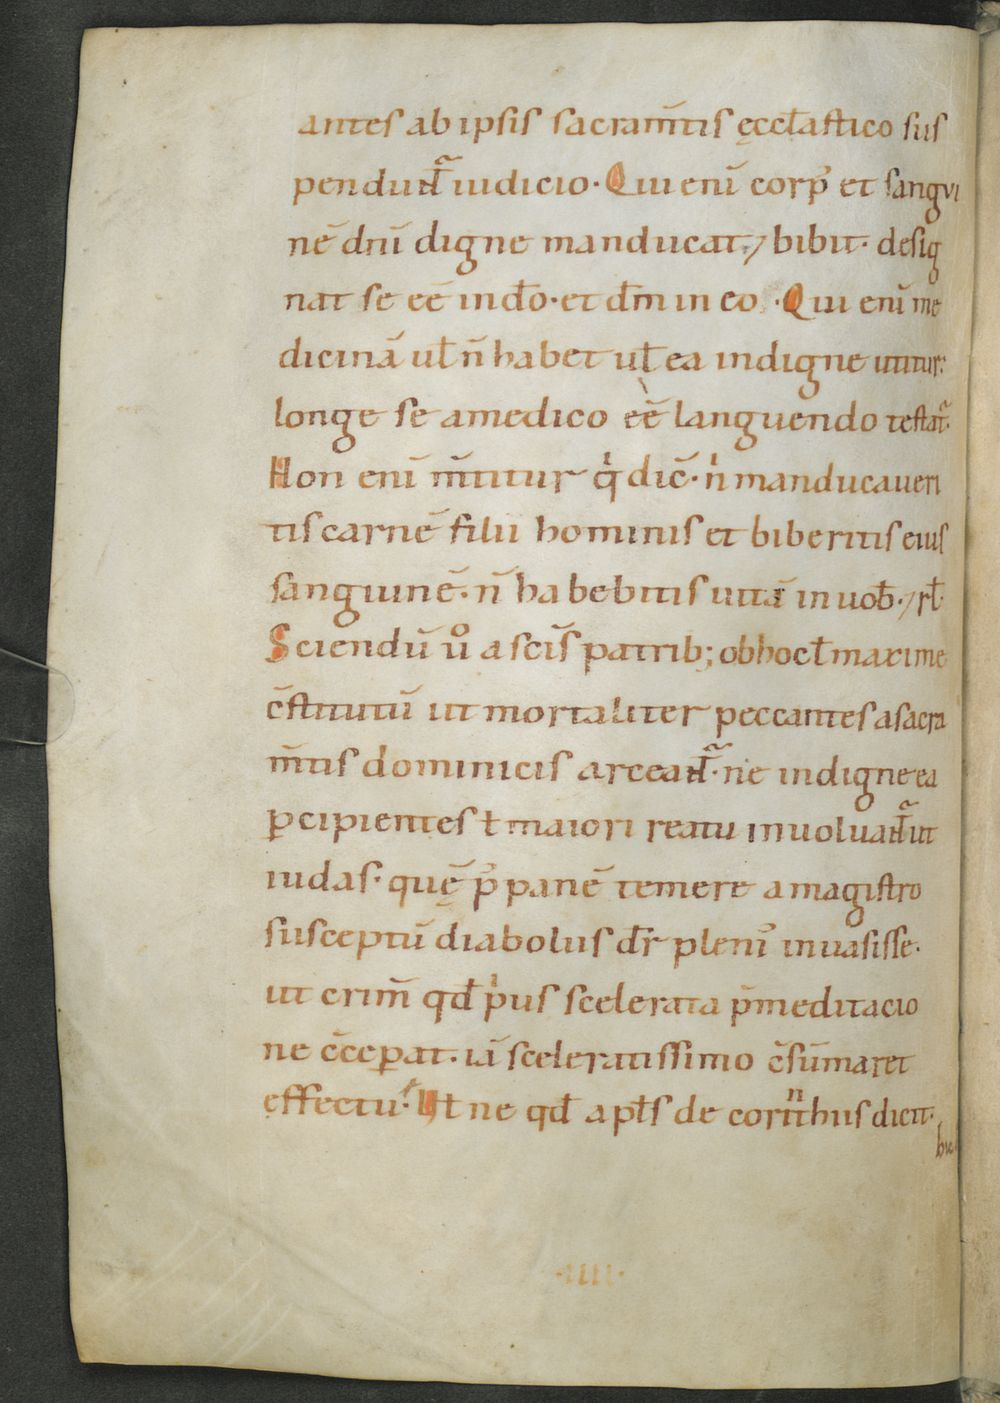 antes ab ipsis sacram̄tis ęccl̄astico sus
penduntᷓ iudicio. Qui enī corp᷒ et sangui
nē dnī digne manducat, / bibit. desig
nat se eē in dō. et dm̄ in eo. Qui enī me
dicinā ul̄ n̄ habet ul̄ ea indigne utitur:
longe se a medico eē languendo testatᷓ.
Non enī m̄titur qͥ dic̄. nͥ manducaueri
tis carnē filii hominis et biberitis eius
sanguinē. n̄ habebitis uitā in uob̄. / rł.
Sciendū uͦ a sc̄is patrib; ob hoc ł maxime
c̄stitutū ut mortaliter peccantes a sacra
m̄tis dominicis arceantᷓ. ne indigne ea
ꝑcipientes ł maiori reatu inuoluantᷓ ut
iudas. quę̄ p᷒ panē temere a magistro
susceptū diabolus dr̄ pleni᷒ inuasisse.
ut crim̄ qd̄ pͥus scelerata p̄meditacio
ne c̄ceꝑat. iā sceleratissimo c̄sūmaret
effectu. Ut ne qd̄ apłs de corinthus dicit.
·IIII·